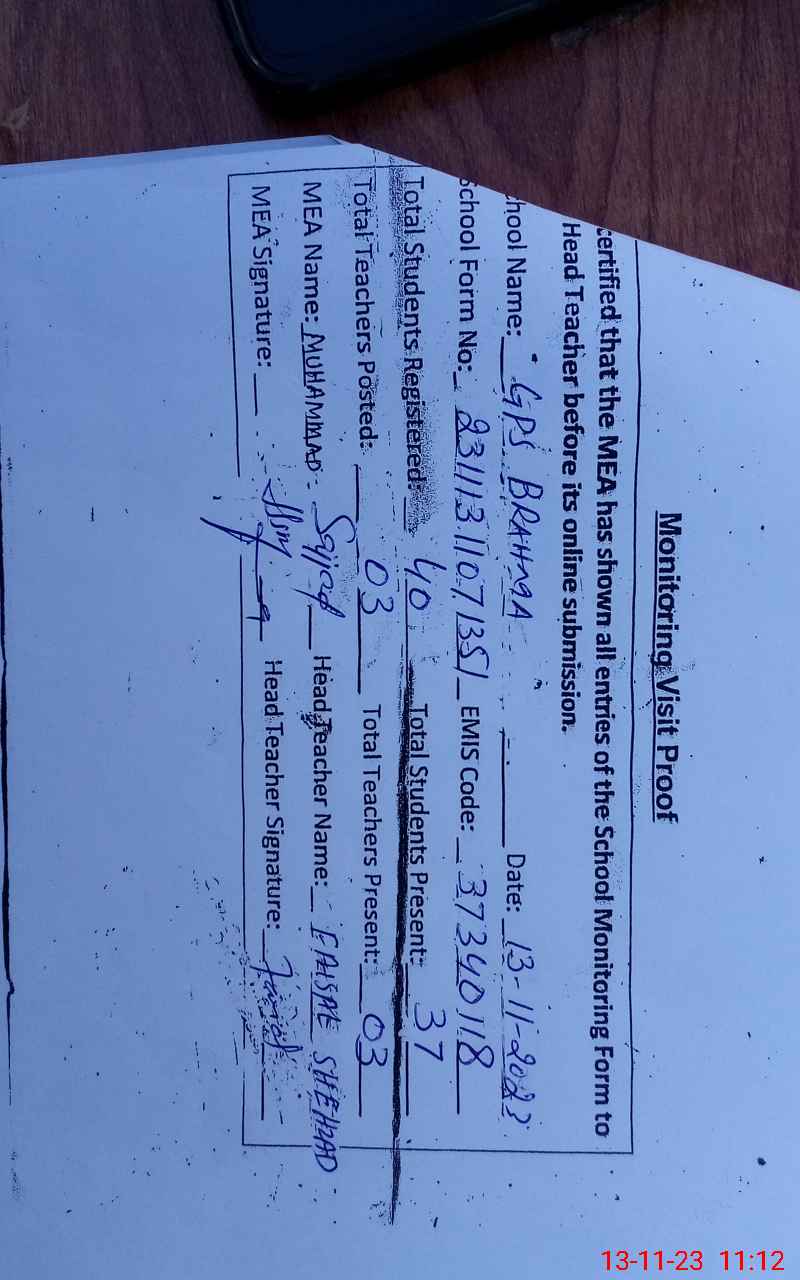 Monitoring Visit Proof
certified that the MEA has shown all entries of the School Monitoring Form to
Head Teacher before its online submission.
hool Name: GPS BRAHMA Date: 13-11-2023
School Form No: 23111311071351 EMIS Code: 37340118
Total Students Registered: 40 Total Students Present: 37
Total Teachers Posted: 03 Total Teachers Present: 03
MEA Name: MUHAMMAD Sajjad Head Teacher Name: FAISAL SHEHZAD
MEA Signature: Head Teacher Signature:
13-11-23 11:12